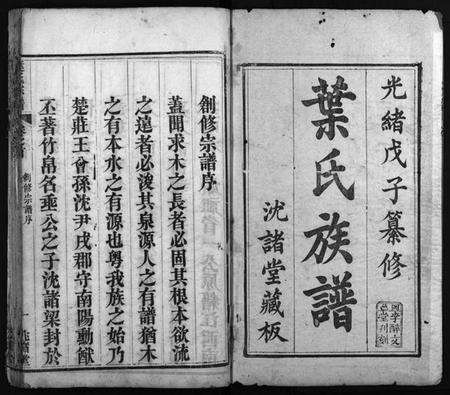 光緒戊子纂修
葉氏族譜
沈諸堂藏板
創修宗譜序
蓋聞求木之長者必固其根本欲流
之遠者必浚其泉源人之有譜猶木
之有本水之有源也粵我族之始乃
楚莊王曾孫沈尹戌郡守南陽動猷
丕著竹帛名垂公之子沈諸梁封於
創修宗譜序
一